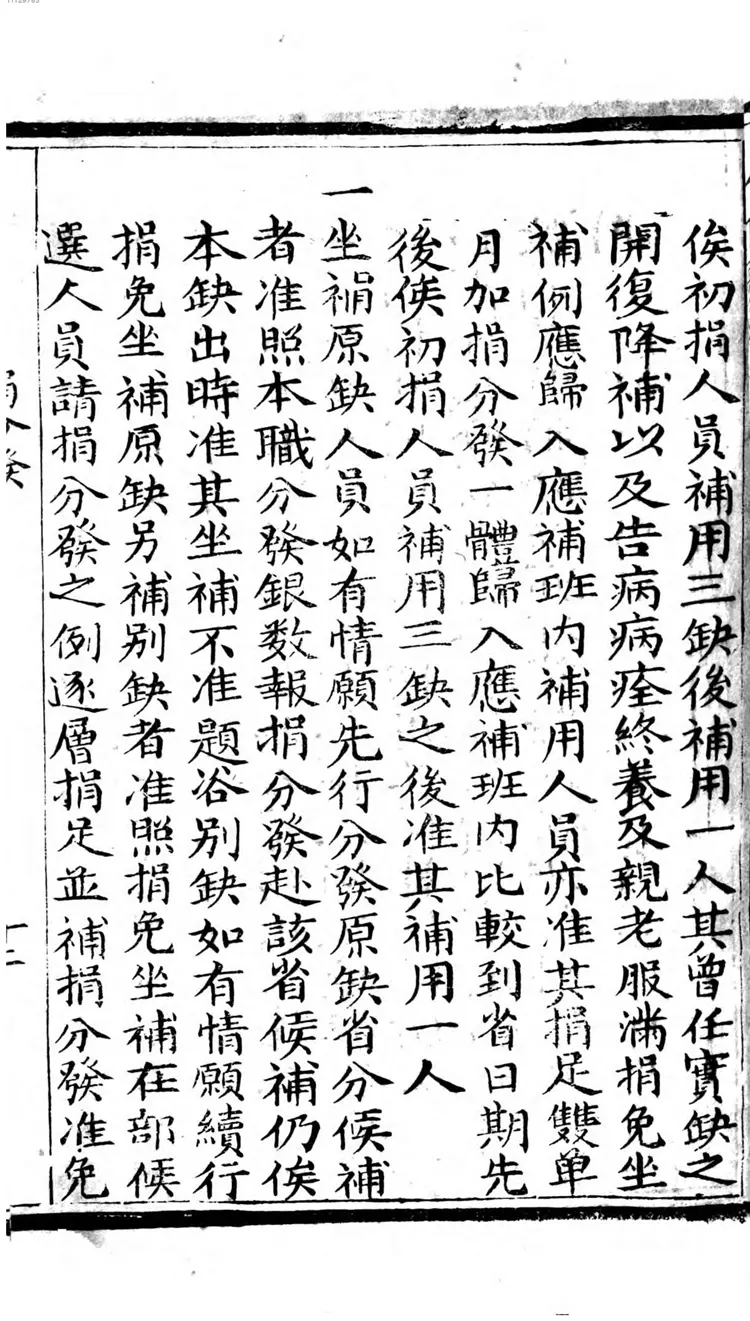 俟初捐人員補用三缺後補用一人其曾任實缺之
開復降補以及告病病痊終養及親老服滿捐免坐
補例應歸入應補班內補用人員亦准其捐足雙單
月加捐分發一體歸入應補班內比較到省日期先
後俟初捐人員補用三缺之後准其補用一人
一
坐補原缺人員如有情願先行分發原缺省分候補
者准照本職分發銀数報捐分發赴該省候補仍俟
本缺出時准其坐補不准題咨別缺如有情願續行
捐免坐補原缺另補别缺者准照捐免坐補在部候
選人員請捐分發之例逐層捐足並補捐分發准免
捐分發
十二